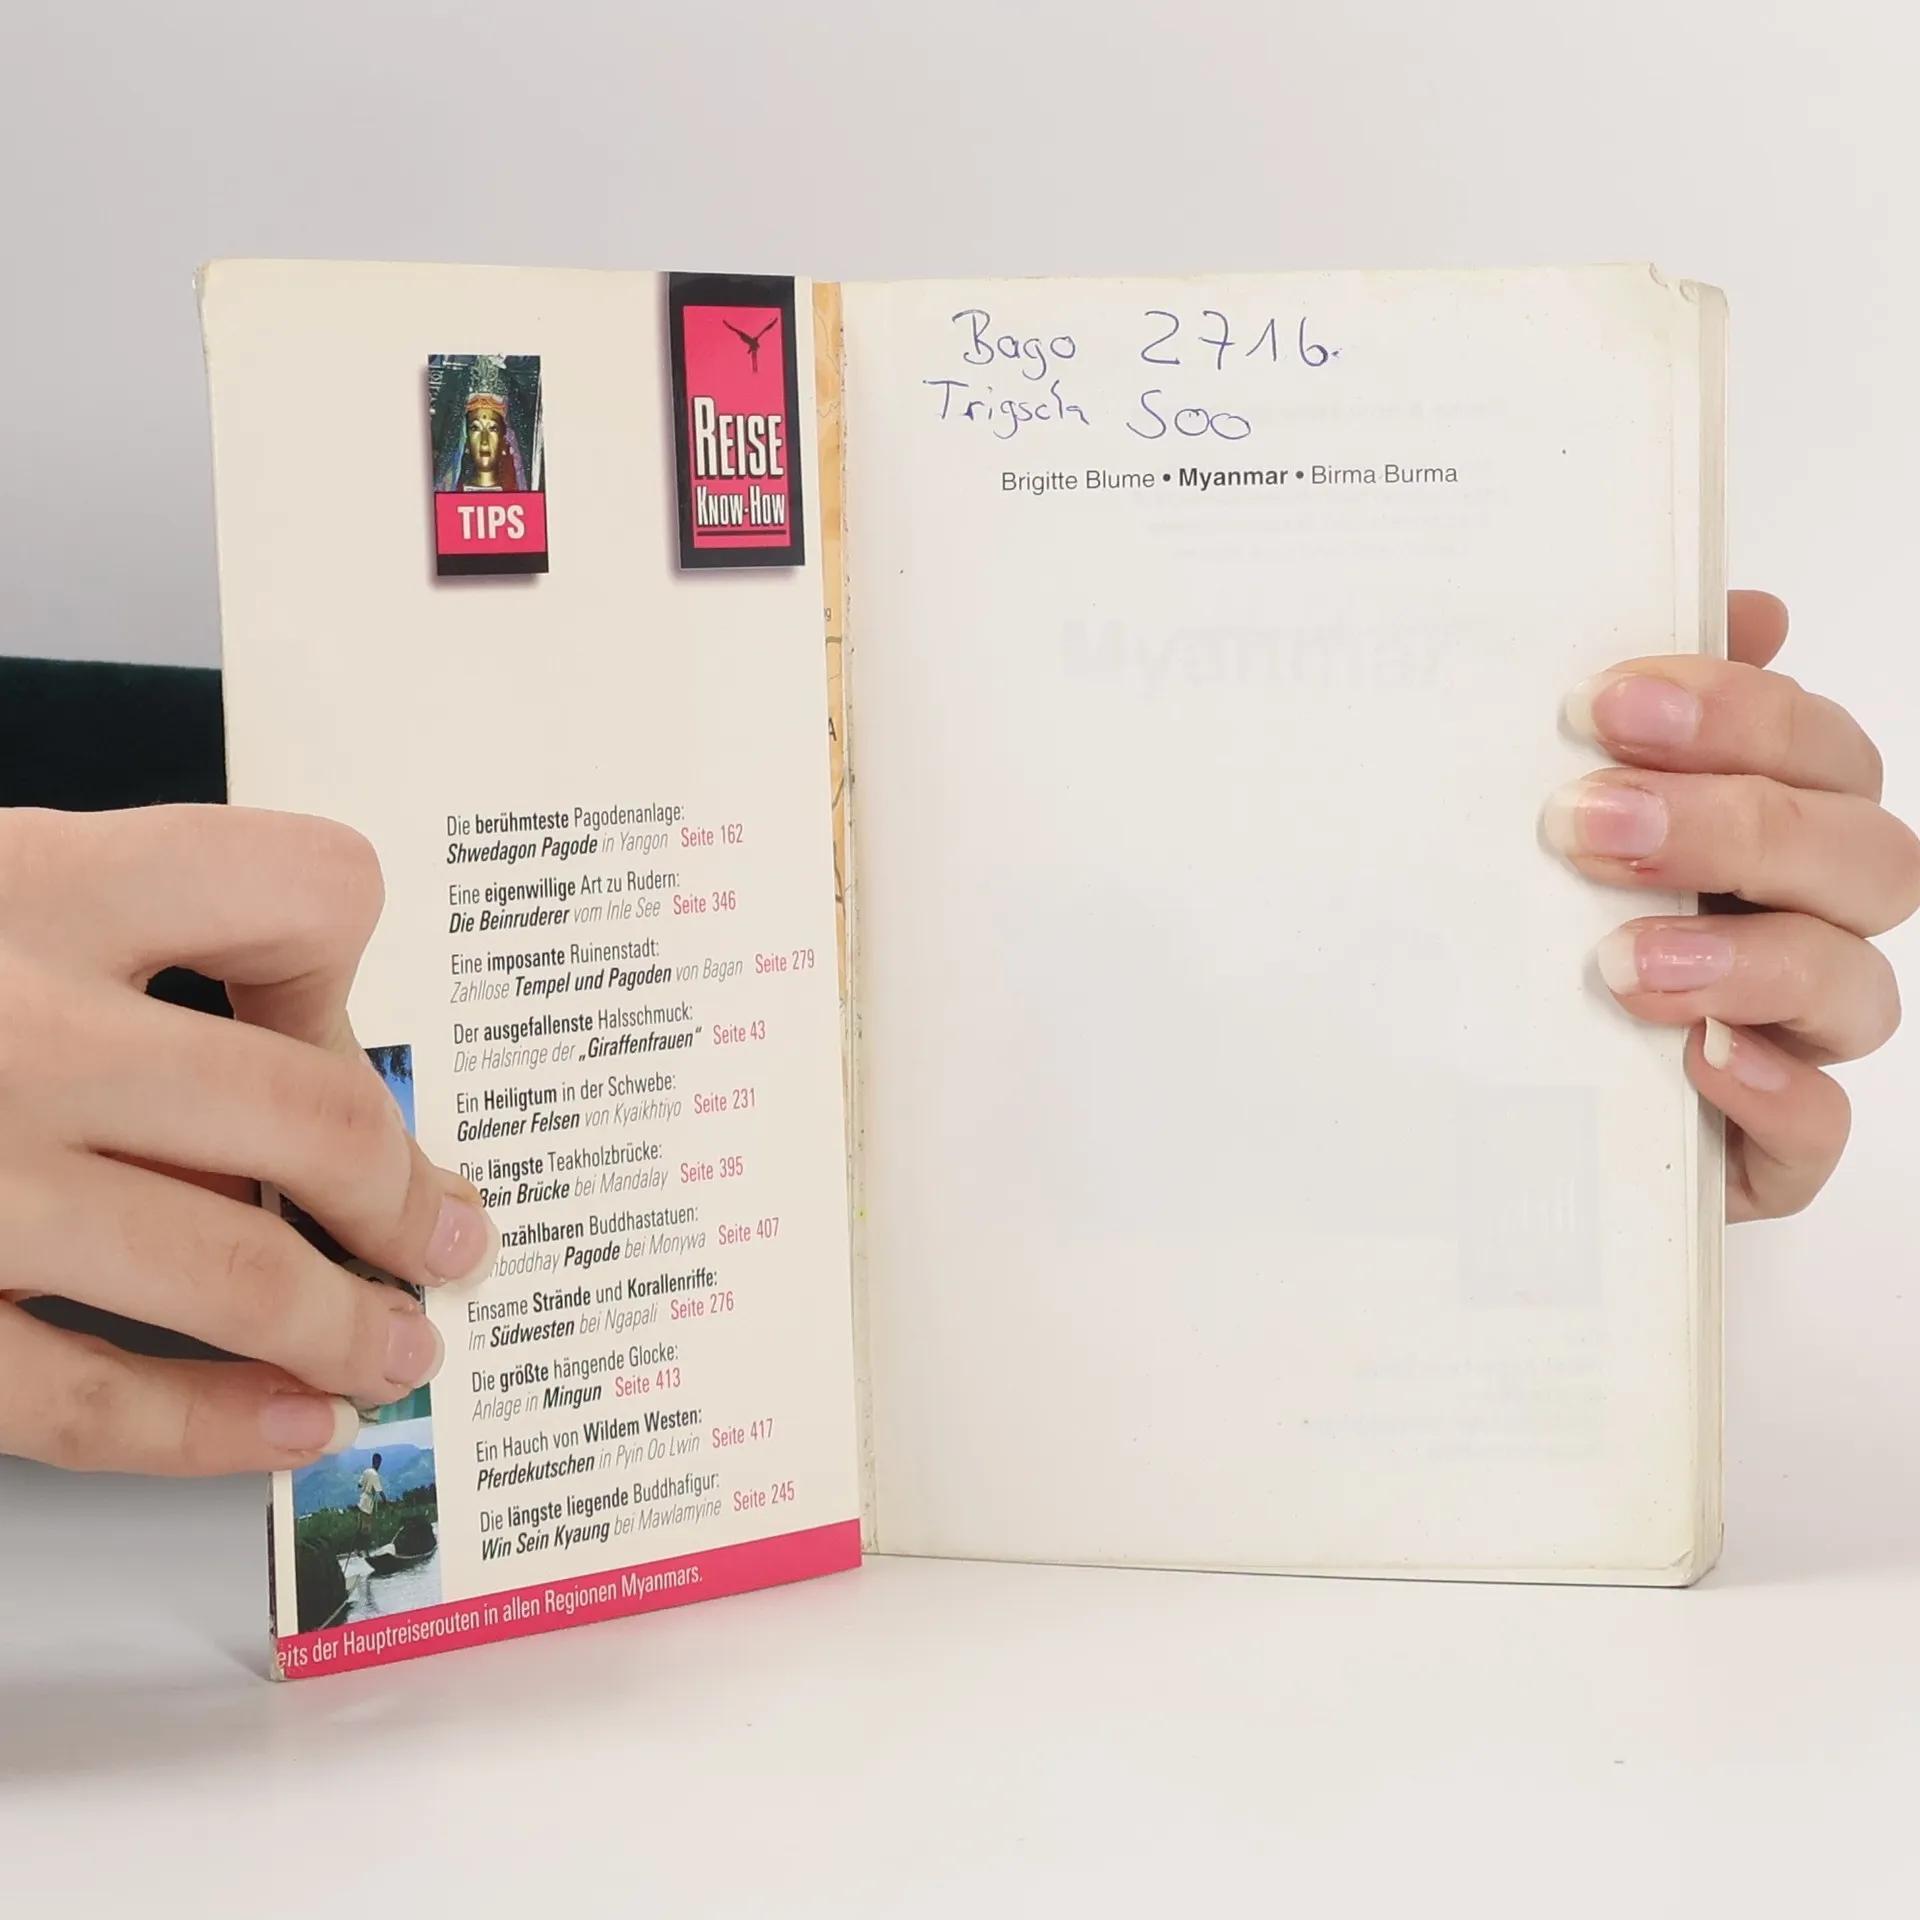 TIPS
REISE
KNOW-HOW
Die berühmteste Pagodenanlage:
Shwedagon Pagode in Yangon Seite 162
Eine eigenwillige Art zu Rudern:
Die Beinruderer vom Inle See Seite 346
Eine imposante Ruinenstadt:
Zahllose Tempel und Pagoden von Bagan Seite 279
Der ausgefallenste Halsschmuck:
Die Halsringe der „Giraffenfrauen“ Seite 43
Ein Heiligtum in der Schwebe:
Goldener Felsen von Kyaikhtiyo Seite 231
Die längste Teakholzbrücke:
Bein Brücke bei Mandalay Seite 395
nzählbaren Buddhastatuen:
boddhay Pagode bei Monywa Seite 407
Einsame Strände und Korallenriffe:
Im Südwesten bei Ngapali Seite 276
Die größte hängende Glocke:
Anlage in Mingun Seite 413
Ein Hauch von Wildem Westen:
Pferdekutschen in Pyin Oo Lwin Seite 417
Die längste liegende Buddhafigur:
Win Sein Kyaung bei Mawlamyine Seite 245
eits der Hauptreiserouten in allen Regionen Myanmars.
Bago 2716.
500
Brigitte Blume • Myanmar • Birma Burma
Myanmar